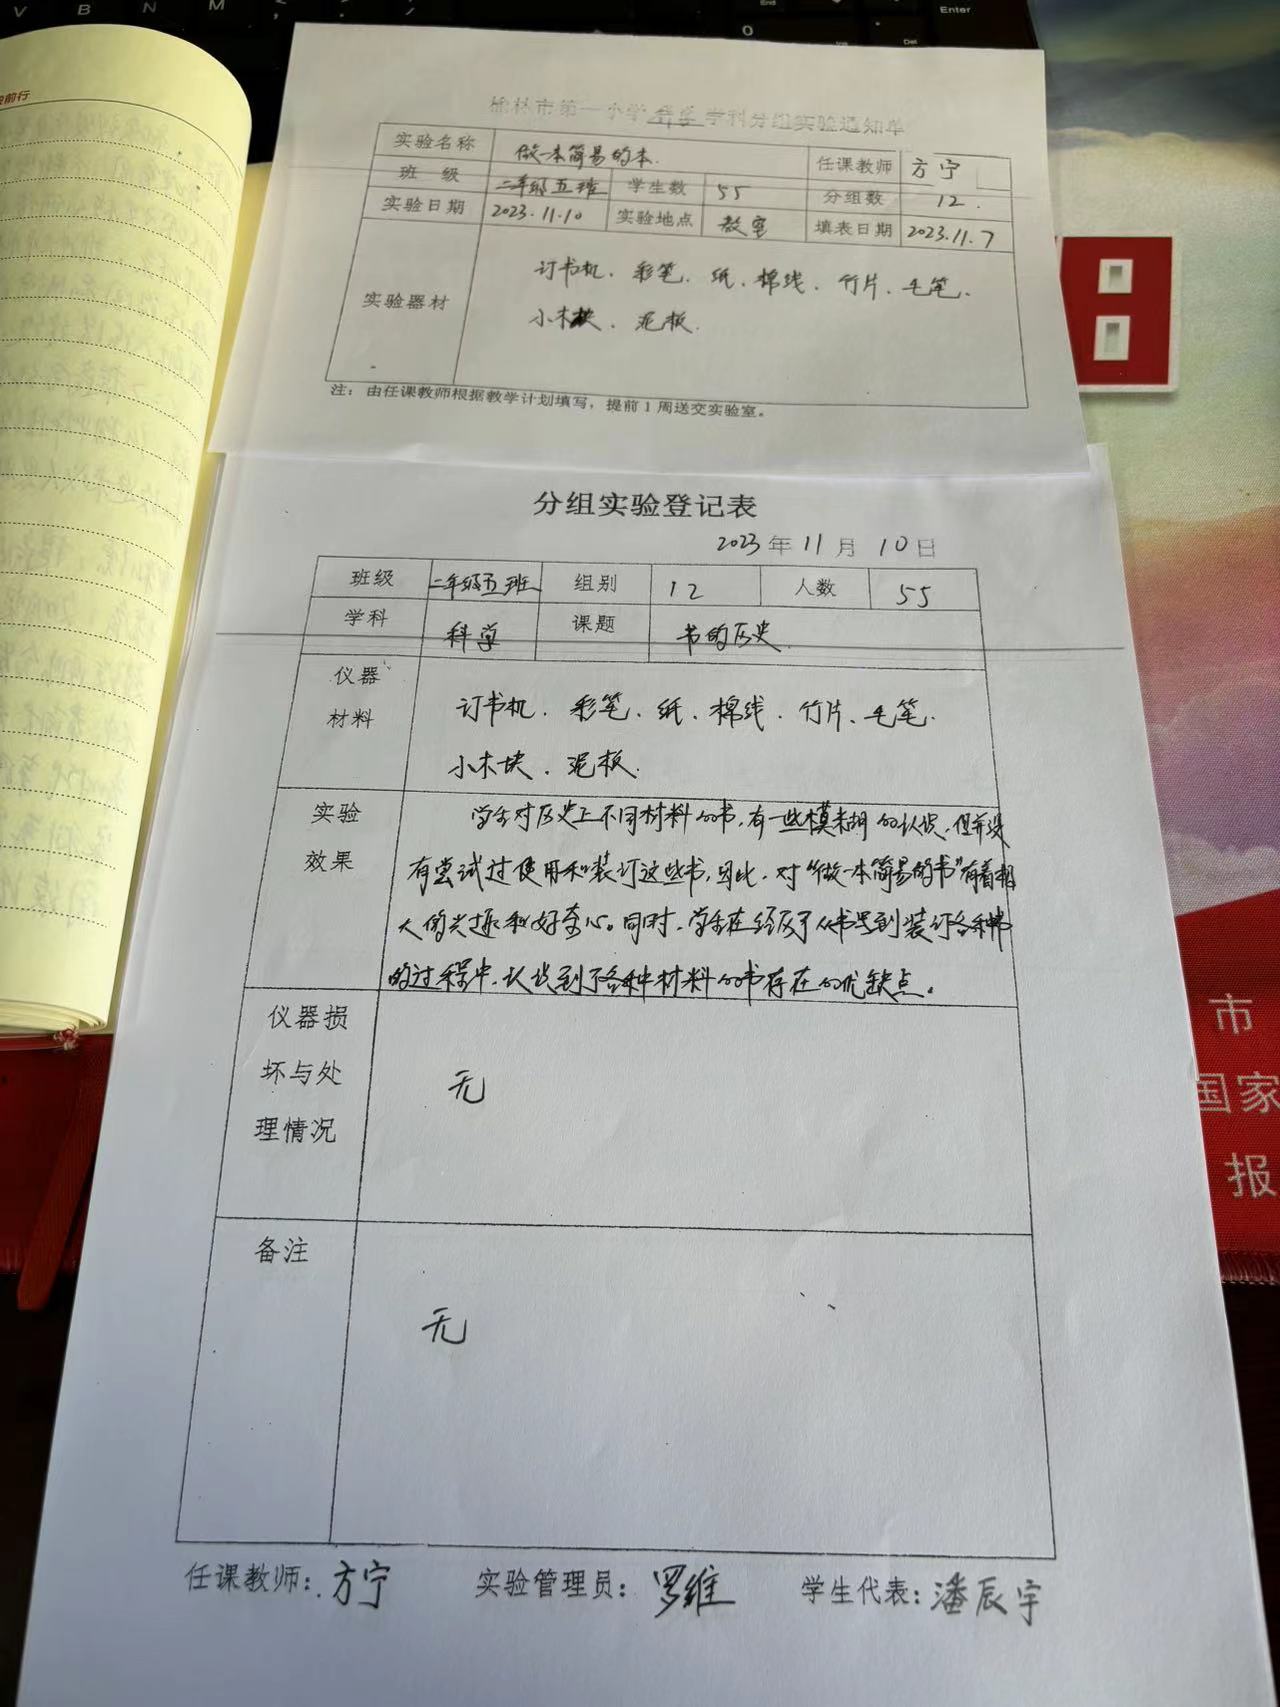 V B N M
End
Enter
0
Ins
Del
前行
榆林市第一小学 科学 学科分组实验通知单
实验名称 做一本简易的本. 任课教师 方宁
班 级 二年级五班 学生数 55 分组数 12.
实验日期 2023.11.10 实验地点 教室 填表日期 2023.11.7
实验器材 订书机、彩笔、纸、棉线、竹片、毛笔、
小木块、泥板.
注：由任课教师根据教学计划填写，提前1周送交实验室。
分组实验登记表
2023年11月10日
班级 二年级五班 组别 12 人数 55
学科 科学 课题 书的历史
仪器 订书机、彩笔、纸、棉线、竹片、毛笔.
材料 小木块、泥板.
实验 学生对历史上不同材料的书，有一些模糊的认识，但并没
效果 有尝试过使用和装订这些书，因此，对“做一本简易的书”有着相
大的兴趣和好奇心。同时，学生在经历了从书写到装订各种书
的过程中，认识到了各种材料的书存在的优缺点。
仪器损
坏与处 无
理情况
备注
无
任课教师：方宁 实验管理员：罗维 学生代表：潘辰宇
市
国家
报